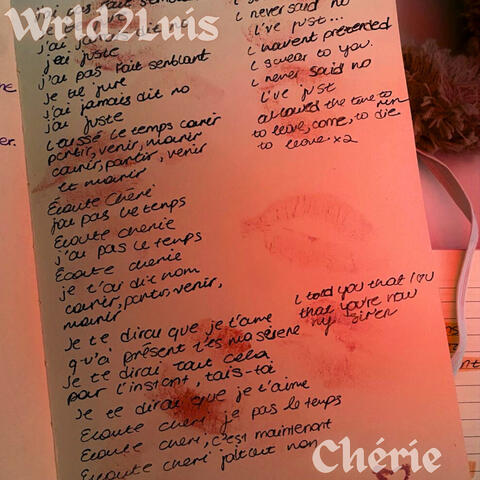 Wrld21.ms
j'ai pas fait semblant
j'ai jamais dit no
j'ai juste
j'ai pas fait semblant
je te jure
j'ai jamais dit no
j'ai juste
Laissé le temps courir
partir, venir, mourir
courir, partir, venir
et mourir
Écoute chéri
j'ai pas le temps
Écoute cherie
j'ai pas le temps
Écoute cherie
je t'ai dit nom
courir, partir, venir,
mourir
Je te dirai que je t'aime
q-u'ai présent t'es ma sérène
Je te dirai tout cela
pour l'instant, tais-toi
Je te dirai que je t'aime
Ecoute cheri je pas le temps
Ecoute cheri, c'est maintenant
Ecoute cheri non
I never said no
I've just...
I havent pretended
I swear to you.
I never said no
I've just
allowed the time to run
to leave, come, to die
to leave x2
I told you that I ♡ u
that you're now
my siren
Chérie